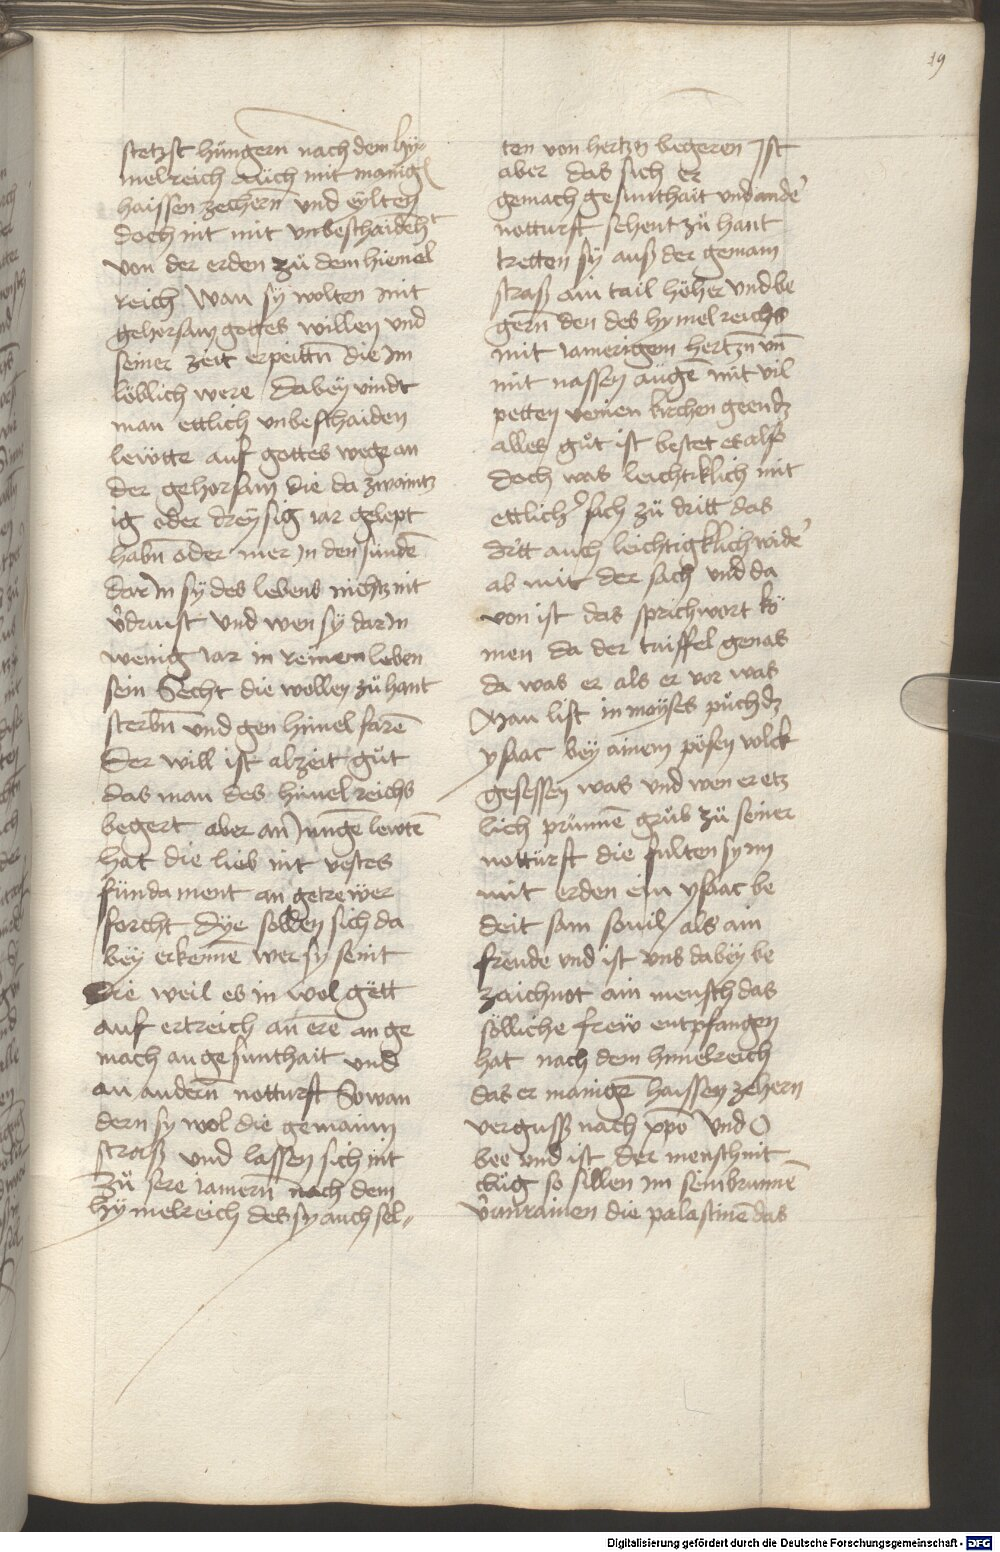 19
stetzst hüngern nach dem hÿ-
melreich auch mit manig
haissen zechern und eylten
doch nit mit vnbeschaidenhͭ
von der erden zü dem hiemel
reich Wan sÿ wolten mit
gehorsam gottes willen und
seiner zeit erpeittn̄ die im
löblich were dabeÿ vindt
man ettlich vnbeschaiden
lewtte auf gottes wege an
der gehorsam die da zwaintz
ig oder dreÿsig iar gelept
habn̄ oder mer in den sünde
dar in sÿ des lebens nichtz nit
v̓drust und wen sÿ dar in
wenig iar in reinem leben
sein Secht die wollen zühant
sterbn̄ und gen himel farē
Der will ist alzeit güt
das man des himelreichs
begert aber an iungē lewtē
hat die lieb nit vestes
fündament an getrewer
forcht Dÿe sollen sich da
beÿ erkennē wer sÿ seint
Die weil es in wol gett
auf ertreich an ere an ge
mach an gesunthait und
an andern̄ notturft So wan
dern sy wol die gemainn
strass und lassen sich nit
zü sere iamern̄ nach dem
hÿmelreich des sy auch sel-
ten von hertzn begeren Ist
aber das sich er
gemach gesunthait und ande̓
notturft sehent zü hant
tretten sÿ auß der gemain
straß ain tail höher und be
gern̄ den des hymelreichs
mit iamerigem hertzn̄ vn̄
mit nassen augē mit vil
petten venien kirchen geen dz
alles güt ist bestet es also
doch was leichtiklich mit
ettlich̓ sach zü dritt das
dritt auch leichtigklich wide̓
ab mit der sach und da
von ist das sprichwort kö
men da der taiffel genas
da was er als er vor was
Man list in moyses püch dz
ysaac beÿ ainem pösen volck
gesessen was und wen er etz
lich prünnē grüb zü seiner
notturft die fulten sy im
mit erden ein ysaac be
deit sam souil als ain
freude und ist uns dabeÿ be
zaichnot ain mensch das
sölliche frew entpfangen
hat nach dem himelreich
das er manigē haissen zehern
vergusß nach xpo und O
bee und ist der mensch nit
clüg so füllen im sein brunnē
v̓unrainen die palastinē das
Digitalisierung gefördert durch die Deutsche Forschungsgemeinschaft - DFG